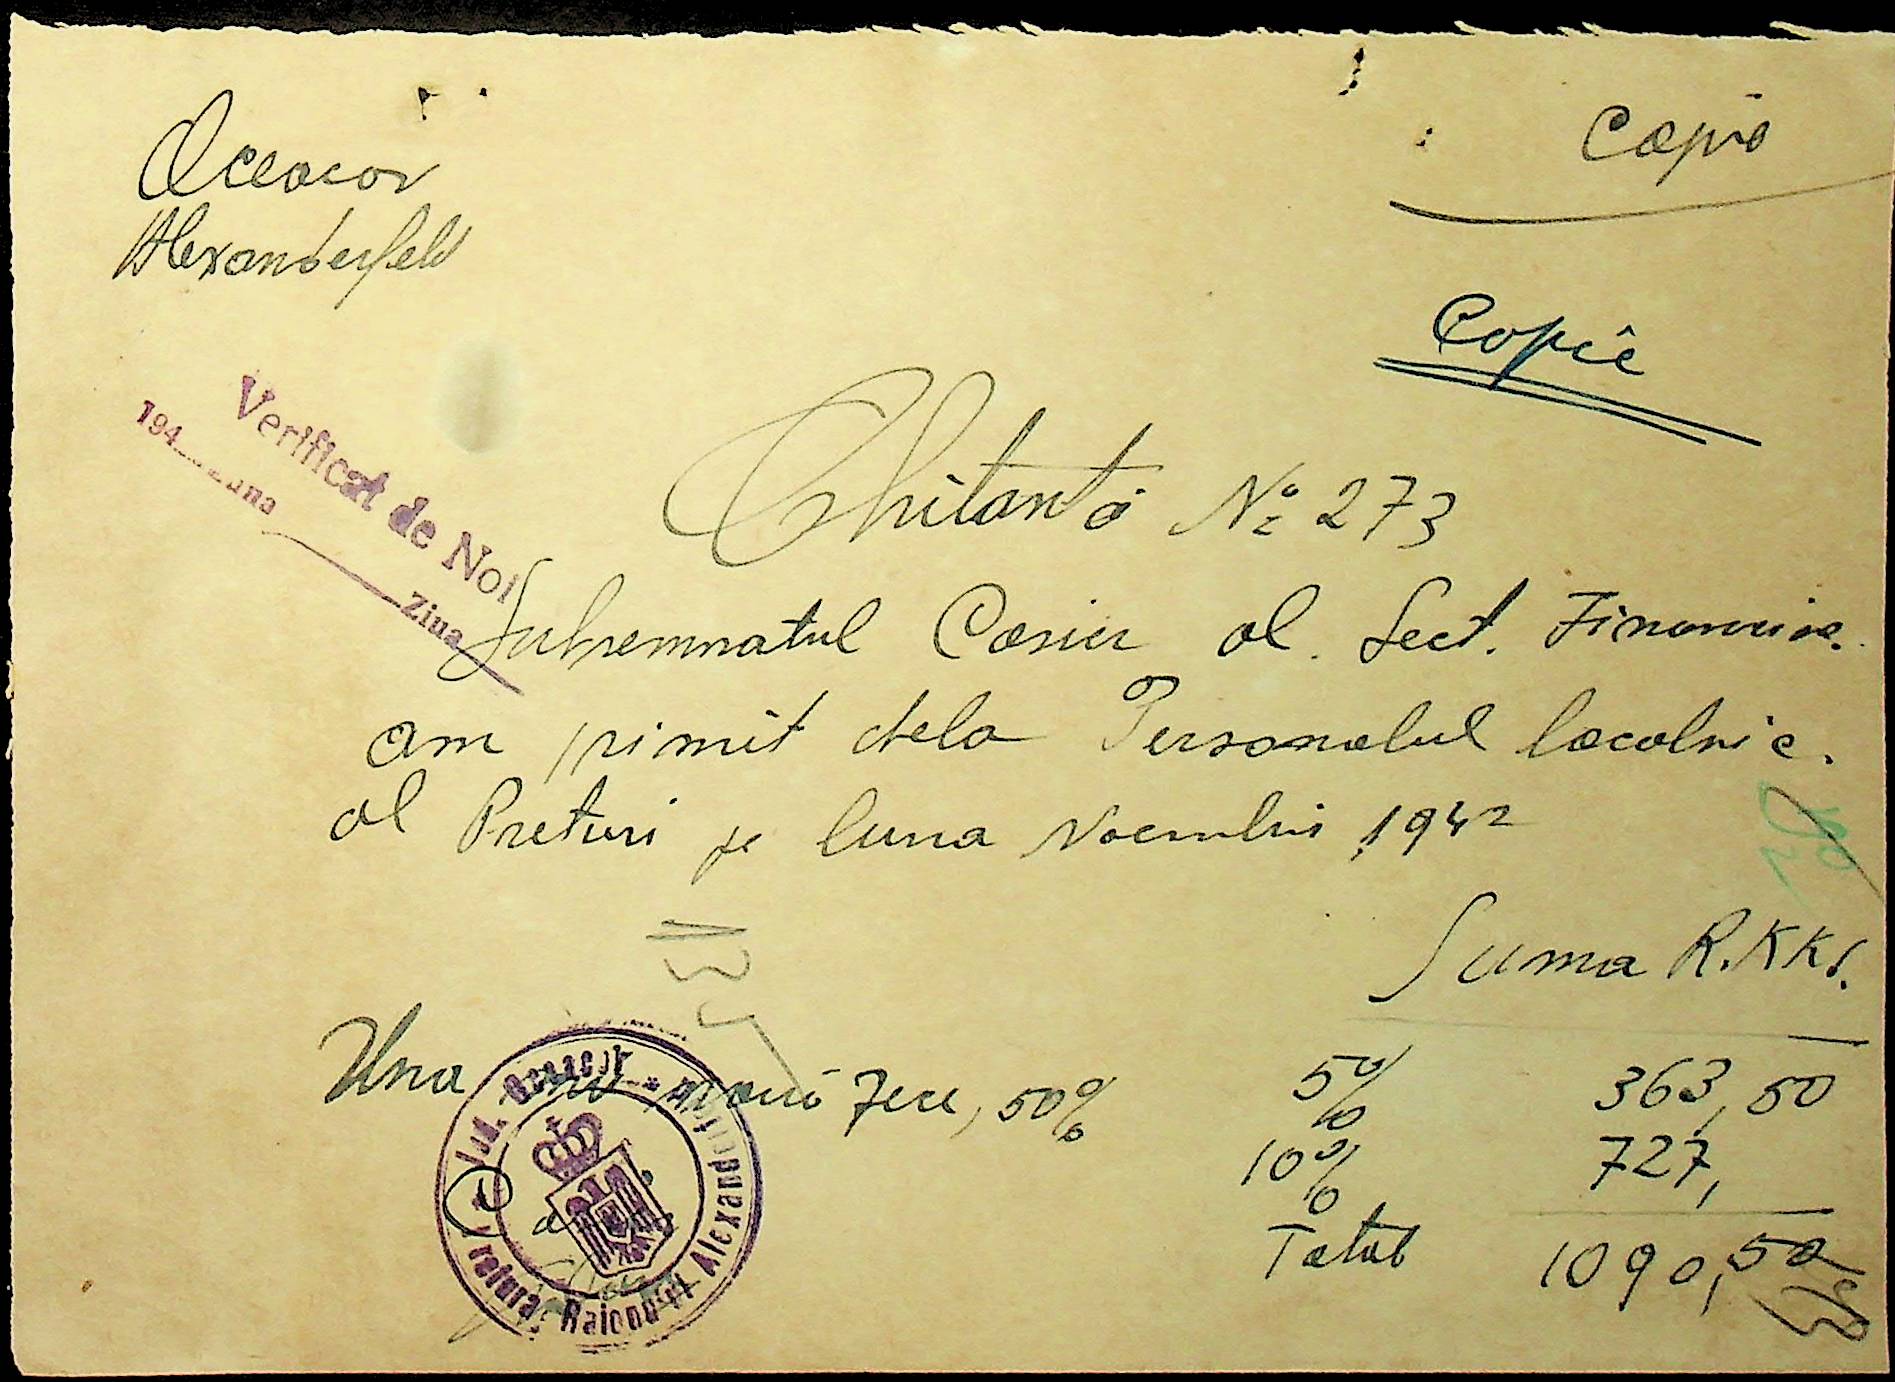 Oceacov
Alexanderfeld
Copie
Copie
Verificat de Noi
194 Luna Ziua
Chitanta No 273
Subsemnatul Casier al Sect. Financiar
am primit dela Personalul localnic
al Preturi pe luna Noembrie 1942
Suma R.KKS.
Una mie nouă zeci, 50%
5% 363,50
10% 727,
Total 1090,50
Jud. Oceacov
Pretura Raionului Alexanderfeld